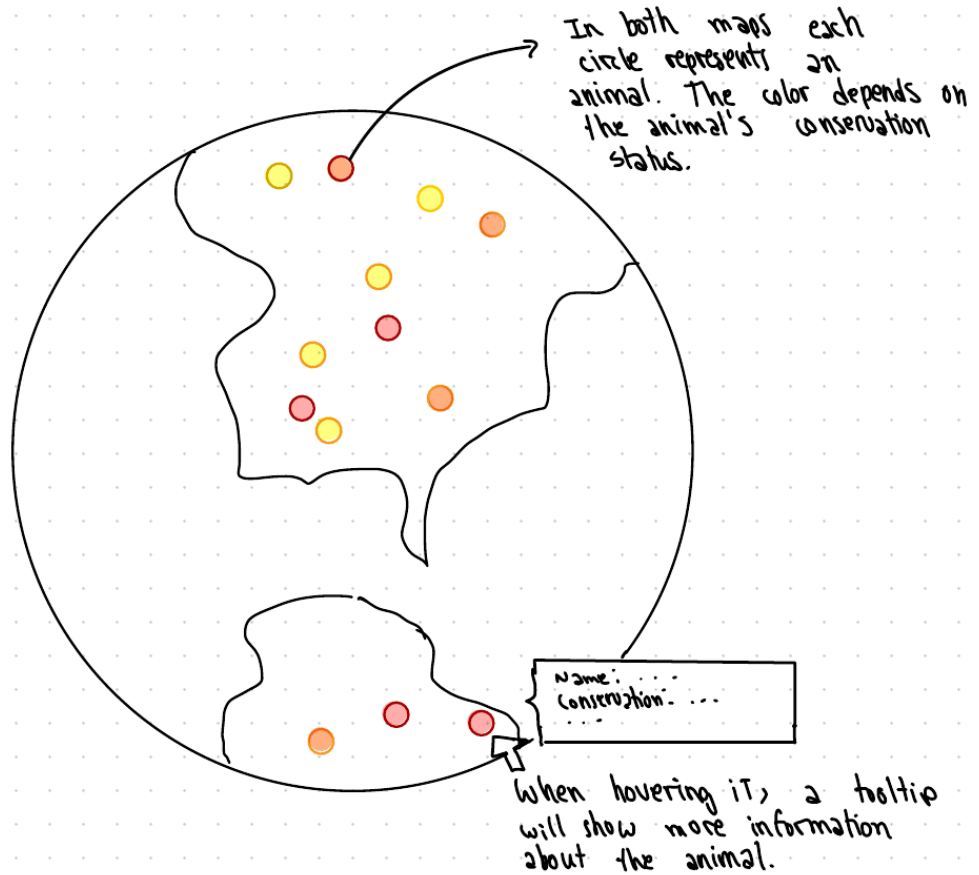 In both maps each
circle represents an
animal. The color depends on
the animal's conservation
status.
Name: ....
Conservation: ...
....
When hovering it, a tooltip
will show more information
about the animal.